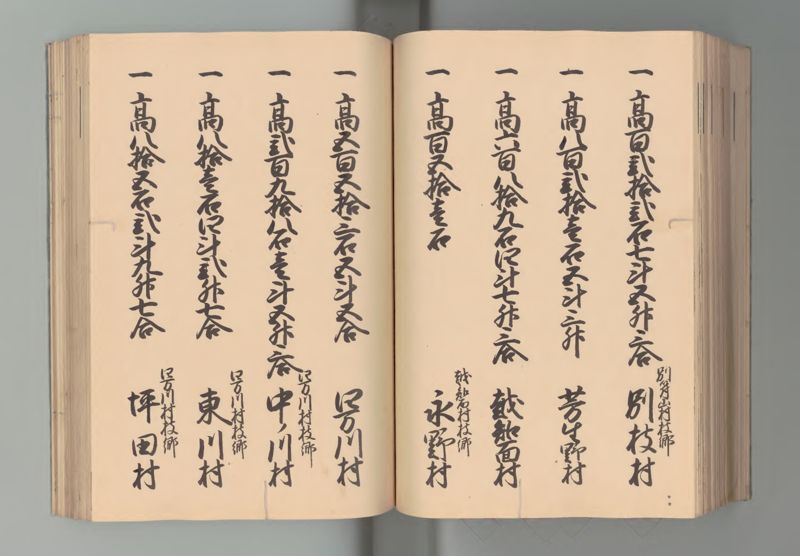 一高百弐拾弐石七斗五升三合
別所山村枝郷
別枝村
一高八百弐拾壱石五斗三升
芳生野村
一高六百八拾九石四斗七升三合
越知面村
一高百五拾壱石
越知面村枝郷
永野村
一高五百五拾三石五斗五合
四万川村
一高弐百九拾八石壱斗五升三合
四万川村枝郷
中ノ川村
一高八拾壱石四斗弐升七合
四万川村枝郷
東川村
一高八拾五石弐斗九升七合
四万川村枝郷
坪田村